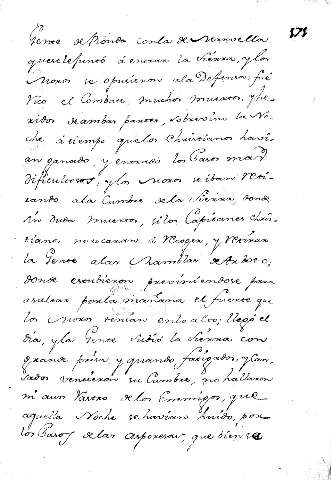 171
Gente de Ronda con la de Marvella
que se le juntó á entrar la Sierra, y los
Moros se opusieron a la Defensa: fué
vico el Combate, muchos muertos, y he-
ridos de ambas partes, sobrevino la No-
che á tiempo que los Christianos havi-
an ganado, y entrado los Pasos mas
dificultosos; y los Moros se iban reti-
rando a la Cumbre de la Sierra, donde
sin duda muertos, si los Capitanes Chris-
tianos no tocaran á recoger, y retirar
la Gente a las Ramblas de Arboto,
donde estubieron previniendose para
asaltar por la mañana el fuerte que
los Moros tenian en lo alto; llegó el
dia, y la Gente subió la Sierra con
grande prisa, y quando fatigados, y can-
sados vencieron su Cumbre, no hallaron
ni aun rastro de los Enemigos, que
aquella Noche se havian huido, por
los Pasos de las asperesas; que bien se